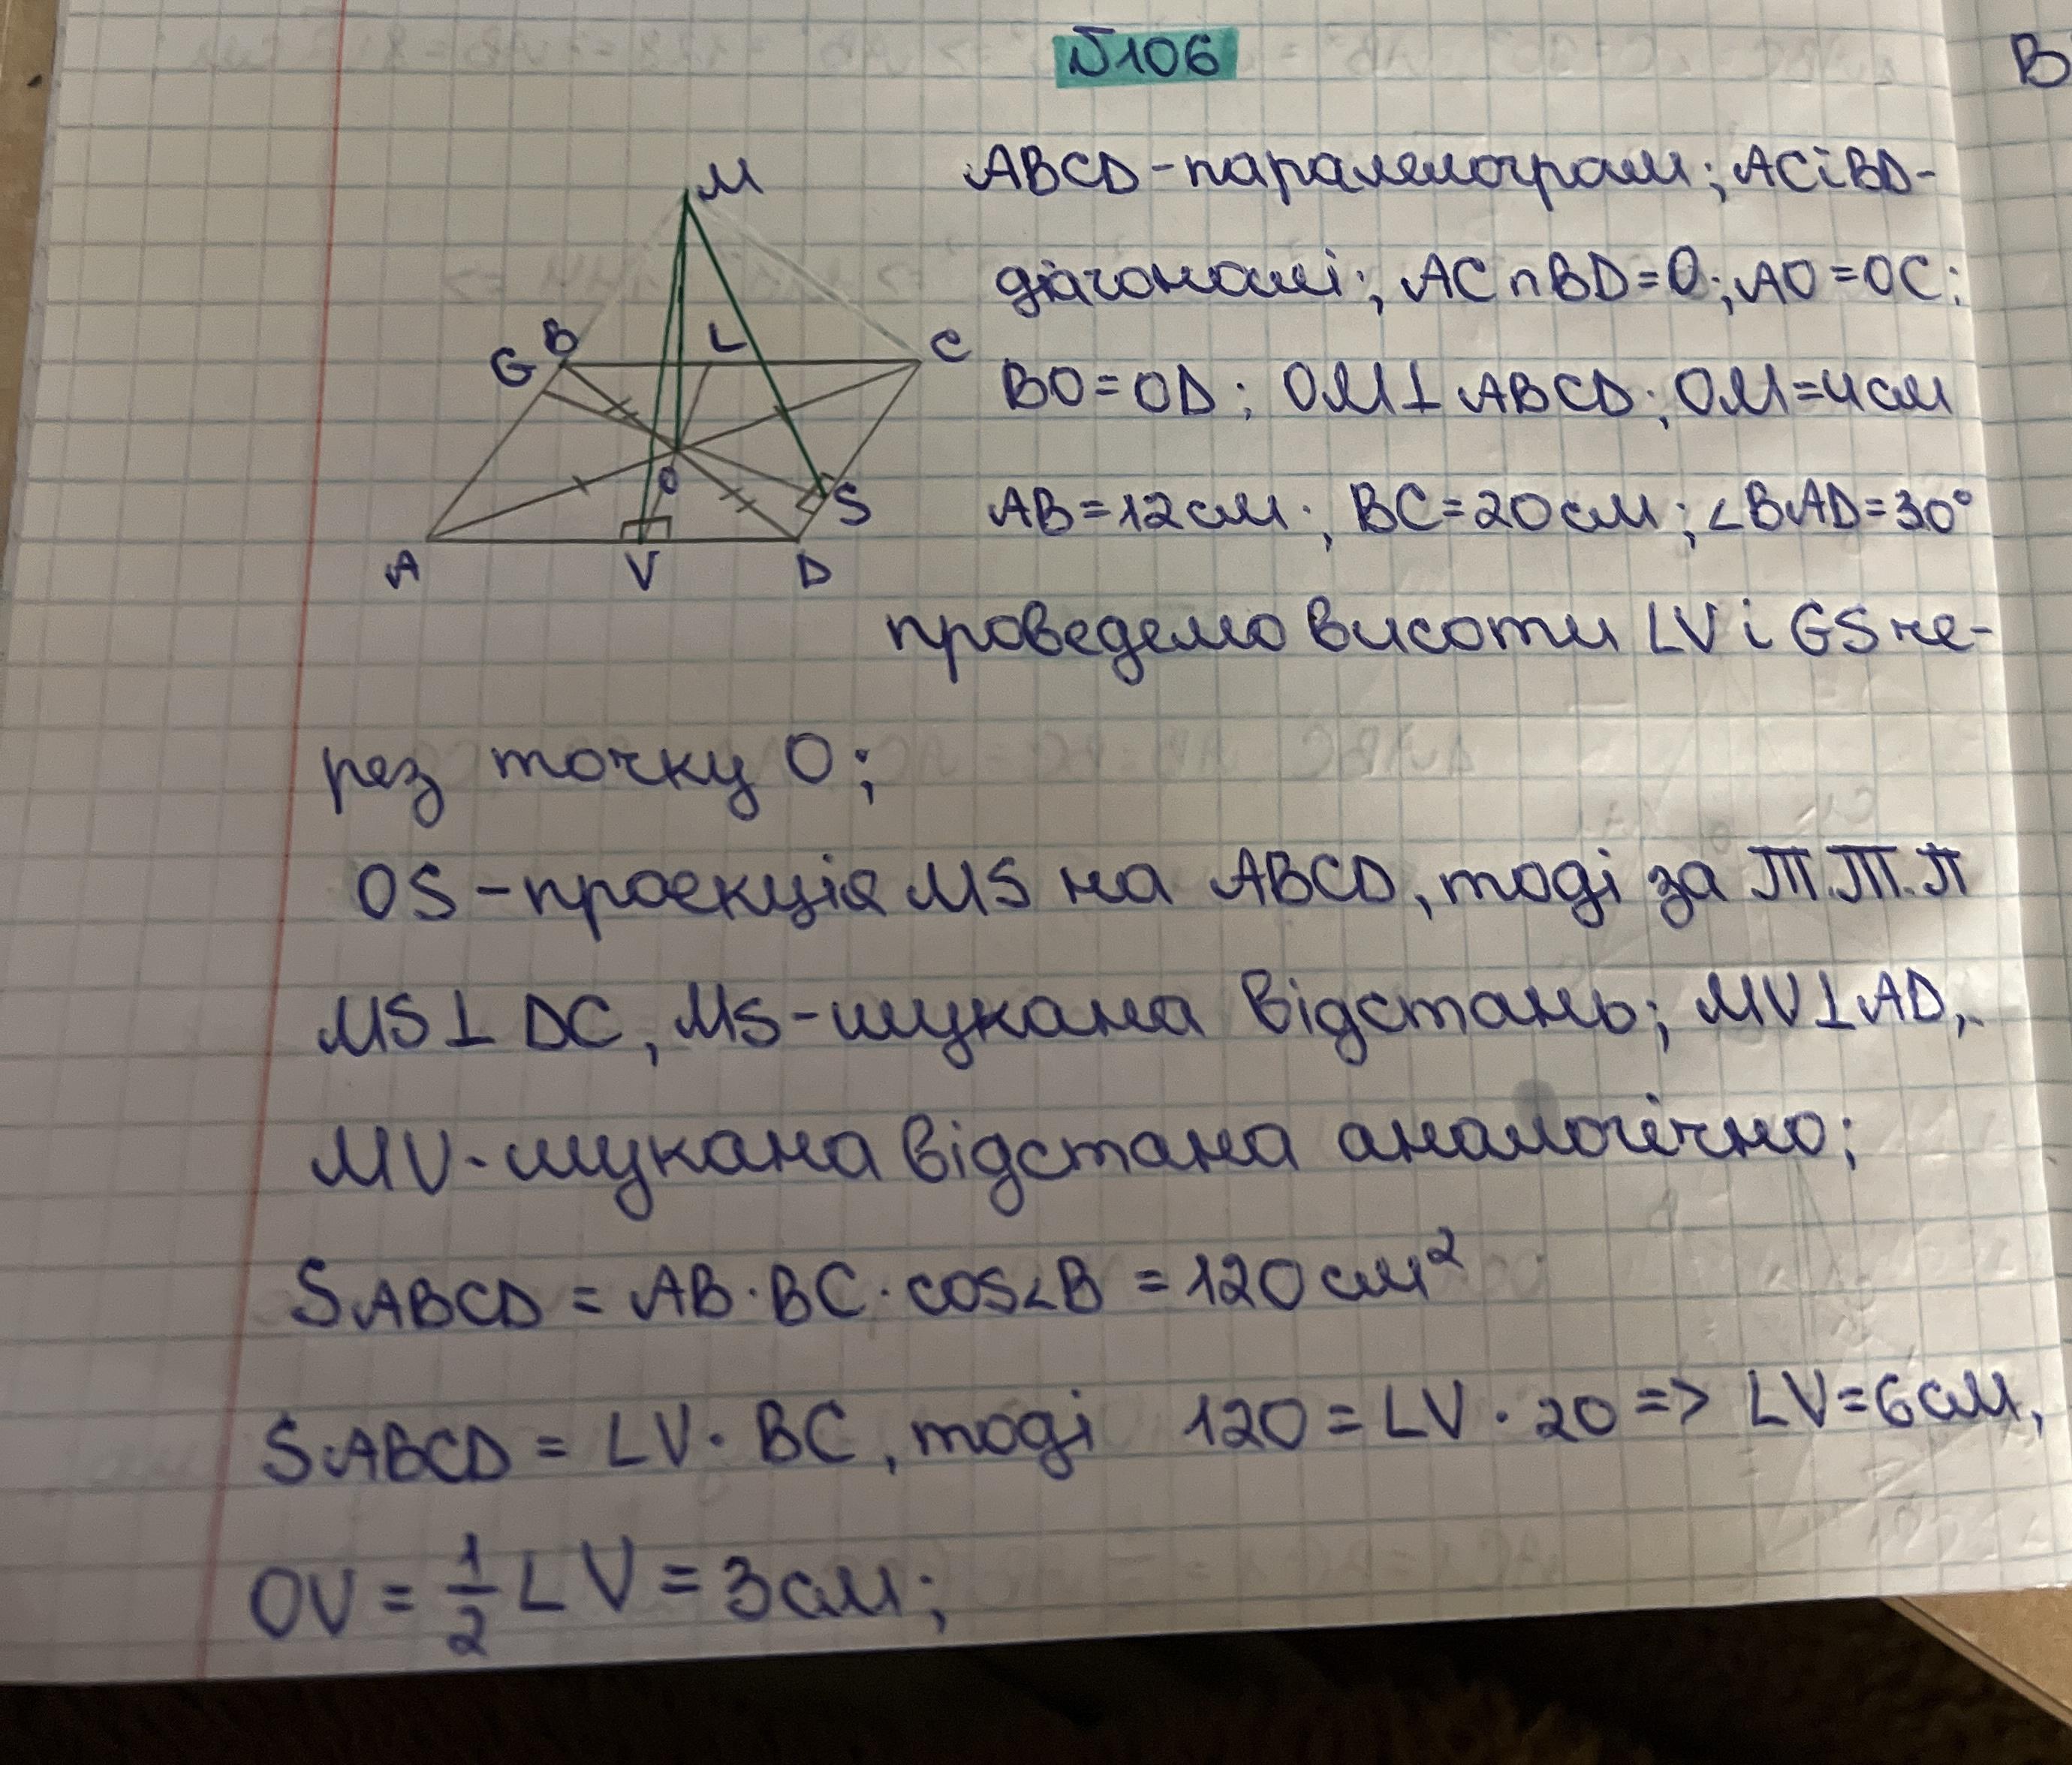 №106
В
M
ABCD-паралелограм; AC і BD-
діагоналі; AC∩BD=O; AO=OC;
G B L C
BO=OD; OM⊥ABCD; OM=4см
O S
AB=12см; BC=20см; ∠BAD=30°
A V D
проведемо висоти LV і GS че-
рез точку O;
OS-проекція MS на ABCD, тоді за Т.Т.П
MS⊥DC, MS-шукана відстань; MV⊥AD,
MV-шукана відстана аналогічно;
SABCD = AB·BC·cos∠B = 120см²
SABCD = LV·BC, тоді 120=LV·20 => LV=6см,
OV = 1/2 LV = 3см;